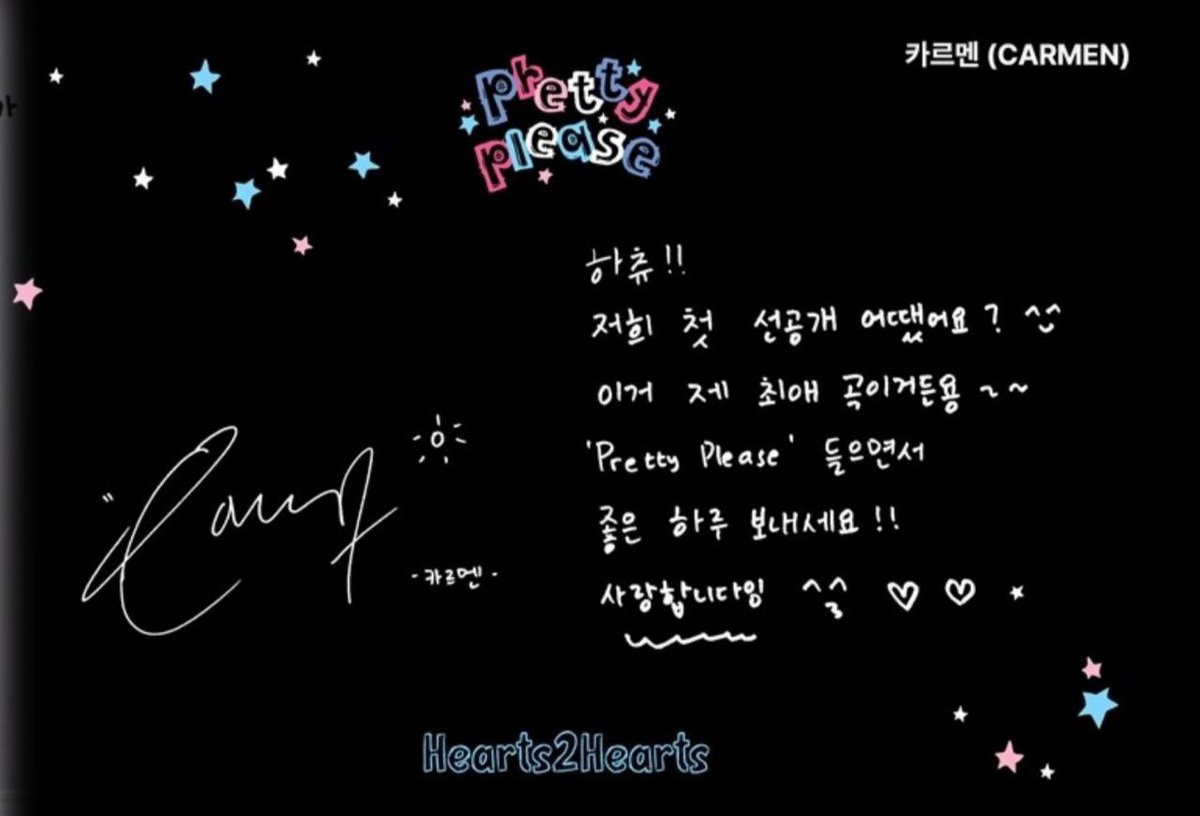 카르멘 (CARMEN)
pretty
please
하츄!!
저희 첫 선공개 어땠어요? ^^
이거 제 최애 곡이거든용~~
'Pretty Please' 들으면서
좋은 하루 보내세요!!
사랑합니다잉 ^3^ ♡ ♡ ⋆
-카르멘-
Hearts2Hearts